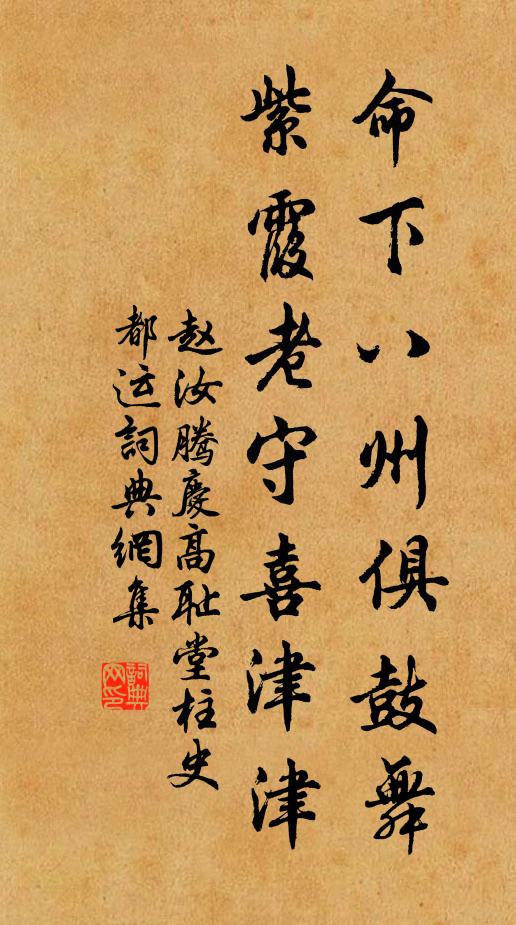 命下八州俱鼓舞
紫霞老守喜津津
赵汝腾慶高耻堂柱史
都运詞典網集
詞典
网印